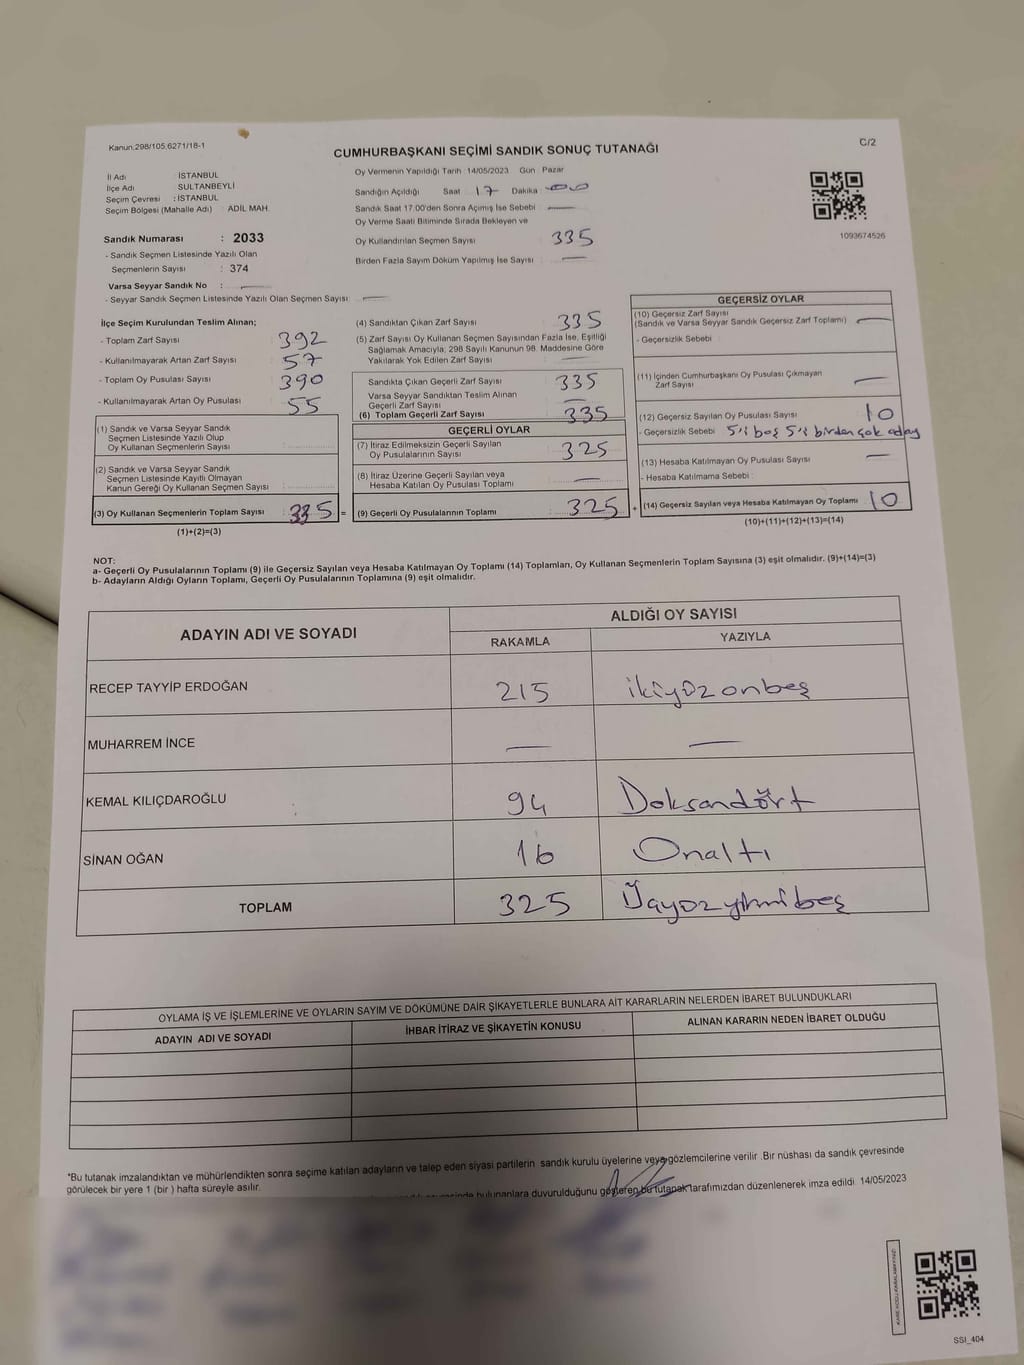 Kanun.298/105,6271/18-1
C/2
CUMHURBAŞKANI SEÇİMİ SANDIK SONUÇ TUTANAĞI
İl Adı : İSTANBUL
İlçe Adı : SULTANBEYLİ
Seçim Çevresi : İSTANBUL
Seçim Bölgesi (Mahalle Adı) : ADİL MAH.
Sandık Numarası : 2033
- Sandık Seçmen Listesinde Yazılı Olan
Seçmenlerin Sayısı : 374
Varsa Seyyar Sandık No : —
- Seyyar Sandık Seçmen Listesinde Yazılı Olan Seçmen Sayısı : —
Oy Vermenin Yapıldığı Tarih 14/05/2023 Gün Pazar
Sandığın Açıldığı Saat 17 Dakika 00
Sandık Saat 17.00'den Sonra Açımış İse Sebebi : —
Oy Verme Saati Bitiminde Sırada Bekleyen ve
Oy Kullandırılan Seçmen Sayısı 335
Birden Fazla Sayım Döküm Yapılmış İse Sayısı : —
1093674526
İlçe Seçim Kurulundan Teslim Alınan;
- Toplam Zarf Sayısı : 392
- Kullanılmayarak Artan Zarf Sayısı : 57
- Toplam Oy Pusulası Sayısı : 390
- Kullanılmayarak Artan Oy Pusulası : 55
(1) Sandık ve Varsa Seyyar Sandık
Seçmen Listesinde Yazılı Olup
Oy Kullanan Seçmenlerin Sayısı :
(2) Sandık ve Varsa Seyyar Sandık
Seçmen Listesinde Kayıtlı Olmayan
Kanun Gereği Oy Kullanan Seçmen Sayısı :
(3) Oy Kullanan Seçmenlerin Toplam Sayısı : 335 =
(1)+(2)=(3)
(4) Sandıktan Çıkan Zarf Sayısı : 335
(5) Zarf Sayısı Oy Kullanan Seçmen Sayısından Fazla İse, Eşitliği
Sağlamak Amacıyla; 298 Sayılı Kanunun 98. Maddesine Göre
Yakılarak Yok Edilen Zarf Sayısı : —
Sandıkta Çıkan Geçerli Zarf Sayısı : 335
Varsa Seyyar Sandıktan Teslim Alınan
Geçerli Zarf Sayısı : —
(6) Toplam Geçerli Zarf Sayısı : 335
GEÇERLİ OYLAR
(7) İtiraz Edilmeksizin Geçerli Sayılan
Oy Pusulalarının Sayısı : 325
(8) İtiraz Üzerine Geçerli Sayılan veya
Hesaba Katılan Oy Pusulası Toplamı : —
(9) Geçerli Oy Pusulalarının Toplamı : 325 +
GEÇERSİZ OYLAR
(10) Geçersiz Zarf Sayısı
(Sandık ve Varsa Seyyar Sandık Geçersiz Zarf Toplamı) : —
- Geçersizlik Sebebi :
(11) İçinden Cumhurbaşkanı Oy Pusulası Çıkmayan
Zarf Sayısı : —
(12) Geçersiz Sayılan Oy Pusulası Sayısı : 10
- Geçersizlik Sebebi : 5'i boş 5'i birden çok aday
(13) Hesaba Katılmayan Oy Pusulası Sayısı : —
- Hesaba Katılmama Sebebi :
(14) Geçersiz Sayılan veya Hesaba Katılmayan Oy Toplamı : 10
(10)+(11)+(12)+(13)=(14)
NOT:
a- Geçerli Oy Pusulalarının Toplamı (9) ile Geçersiz Sayılan veya Hesaba Katılmayan Oy Toplamı (14) Toplamları, Oy Kullanan Seçmenlerin Toplam Sayısına (3) eşit olmalıdır. (9)+(14)=(3)
b- Adayların Aldığı Oyların Toplamı, Geçerli Oy Pusulalarının Toplamına (9) eşit olmalıdır.
ADAYIN ADI VE SOYADI
ALDIĞI OY SAYISI
RAKAMLA YAZIYLA
RECEP TAYYİP ERDOĞAN 215 ikiyüzonbeş
MUHARREM İNCE — —
KEMAL KILIÇDAROĞLU 94 Doksandört
SİNAN OĞAN 16 Onaltı
TOPLAM 325 Üçyüzyirmibeş
OYLAMA İŞ VE İŞLEMLERİNE VE OYLARIN SAYIM VE DÖKÜMÜNE DAİR ŞİKAYETLERLE BUNLARA AİT KARARLARIN NELERDEN İBARET BULUNDUKLARI
ADAYIN ADI VE SOYADI İHBAR İTİRAZ VE ŞİKAYETİN KONUSU ALINAN KARARIN NEDEN İBARET OLDUĞU
*Bu tutanak imzalandıktan ve mühürlendikten sonra seçime katılan adayların ve talep eden siyasi partilerin sandık kurulu üyelerine veya gözlemcilerine verilir .Bir nüshası da sandık çevresinde
görülecek bir yere 1 (bir ) hafta süreyle asılır.
bulunanlara duyurulduğunu gösteren bu tutanak tarafımızdan düzenlenerek imza edildi. 14/05/2023
SSI_404